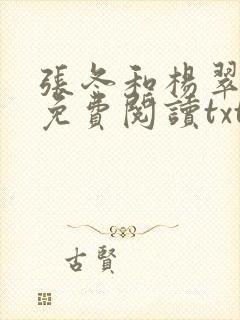 張冬和楊翠
免費閱讀txt
古賢